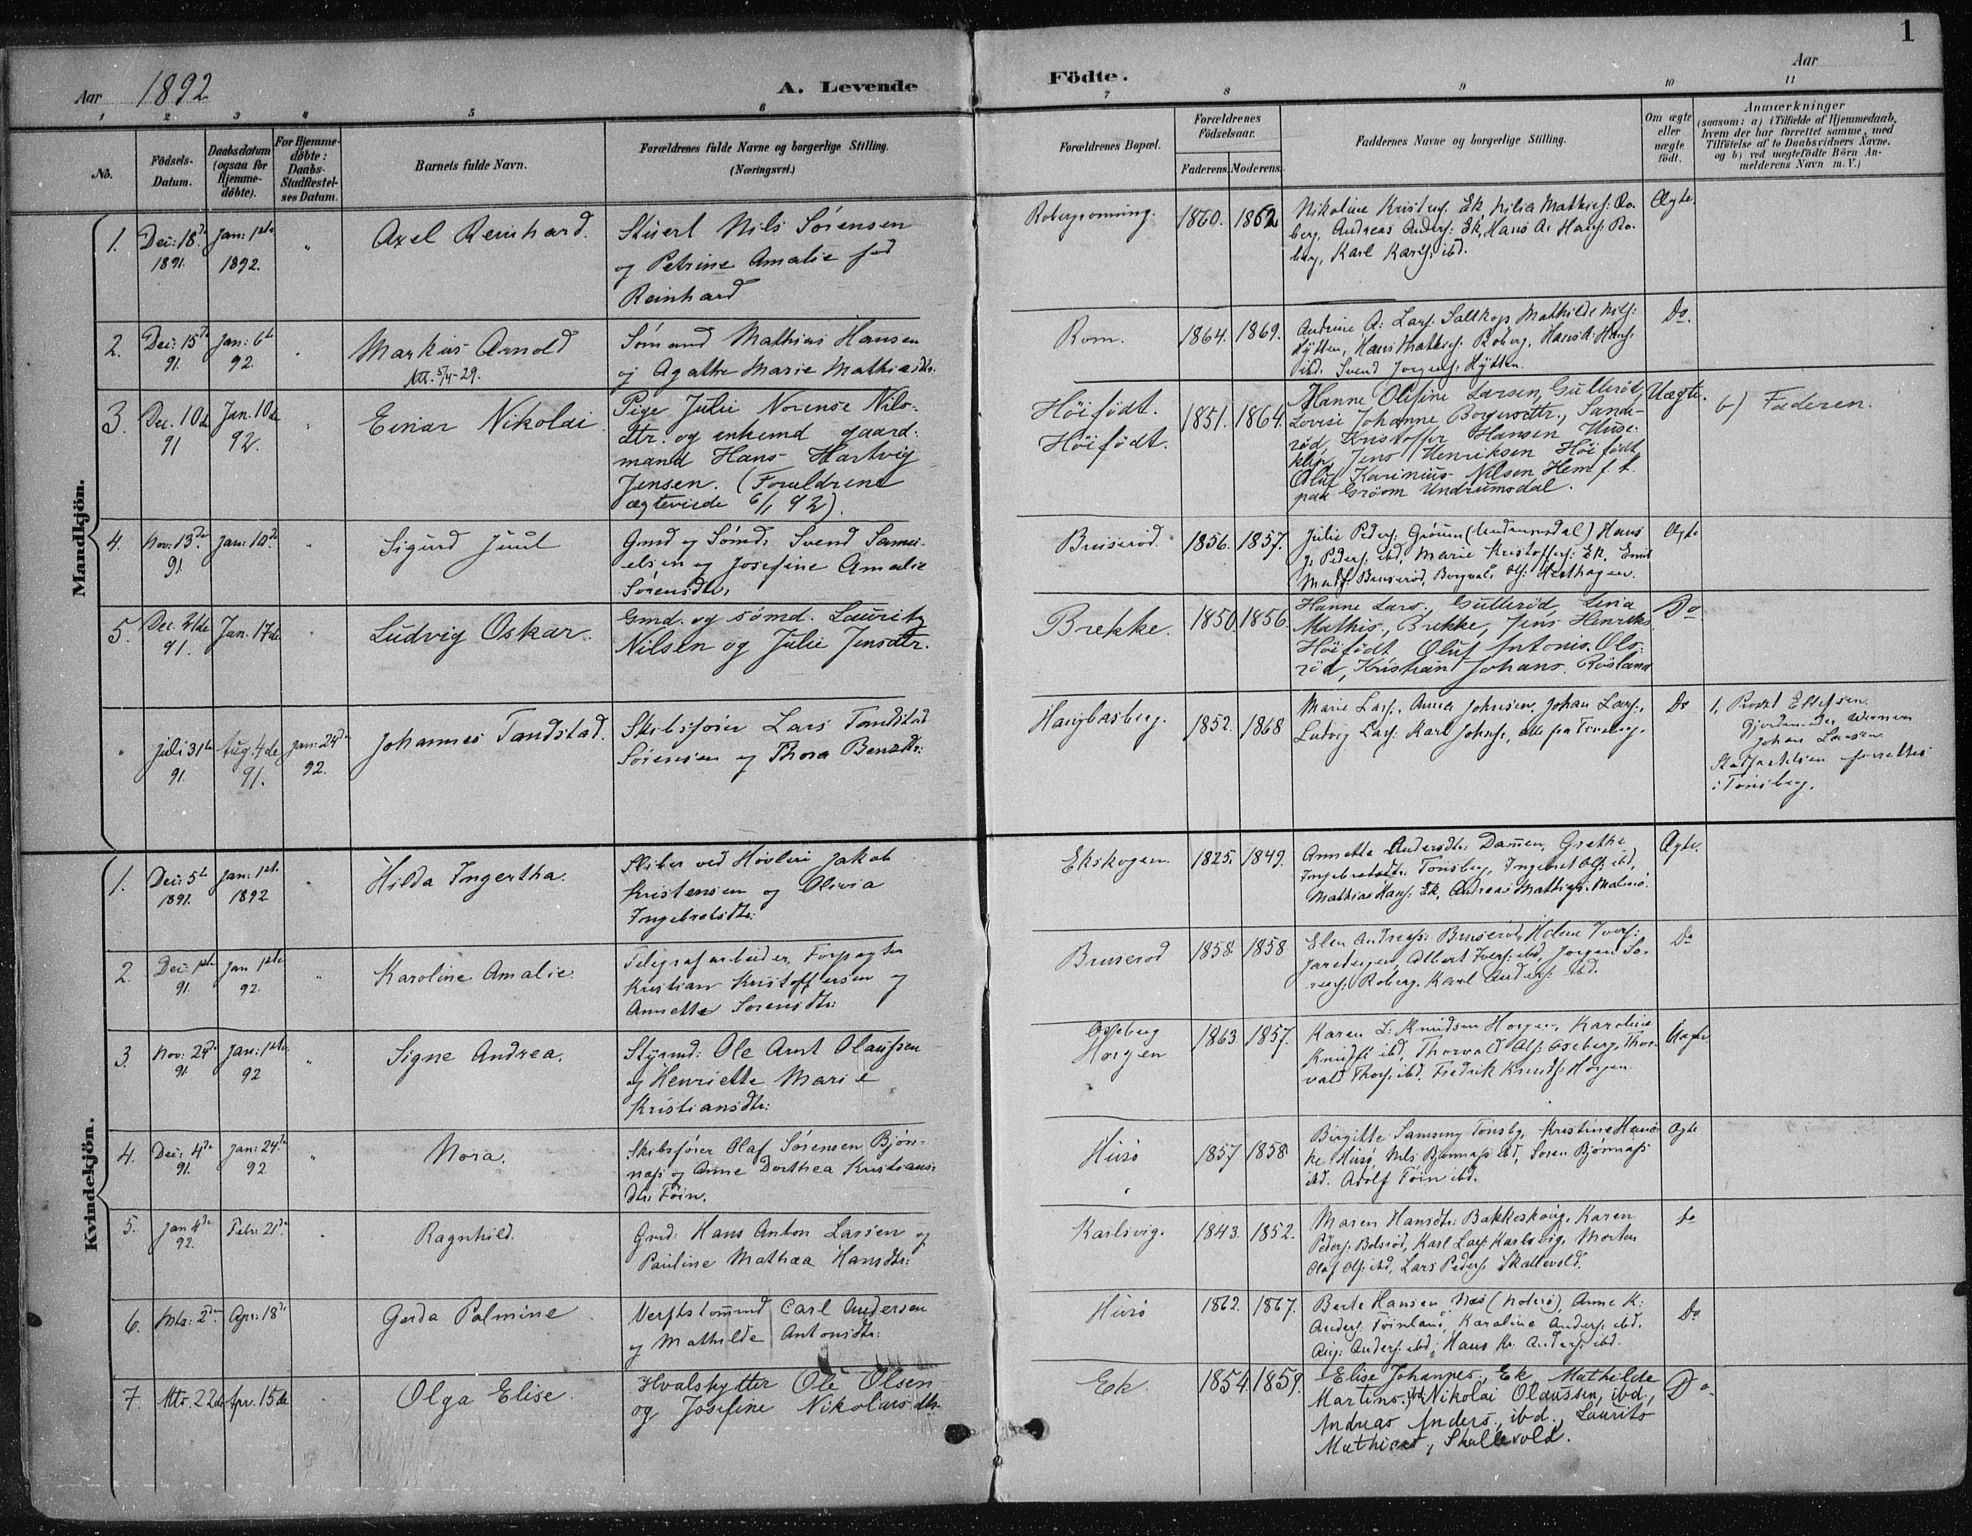 1
Aar 1892
A. Levende Födte.
Aar
1 2 3 4 5 6 7 8 9 10 11
No.
Födsels-
Datum.
Daabsdatum
(ogsaa for
Hjemme-
døbte).
For Hjemme-
døbte:
Daabs-
Stadfæstel-
ses Datum.
Barnets fulde Navn.
Forældrenes fulde Navne og borgerlige Stilling.
(Næringsvei.)
Forældrenes Bopæl.
Forældrenes
Födselsaar.
Faderens. Moderens.
Faddernes Navne og borgerlige Stilling.
Om ægte
eller
uægte
födt.
Anmærkninger
(saasom: a) i Tilfælde af Hjemmedaab,
hvem der har forrettet samme, med
Tilföielse af to Daabsvidners Navne,
og b) ved uægtefödte Börn An-
melderens Navn m. V.)
Mandkjön.
1. Dec: 18de Jan: 1ste
1891. 1892.
Axel Reinhard.
Stuert Nils Sørensen
og Petrine Amalie fød
Reinhard
1860. 1862
Nikoline Kristens: Ek Lilia Mathies: Ro-
berg, Andreas Anders: Ek, Hans A. Hans: Ro-
berg, Karl Karls: ibd.
Ægte.
2. Dec: 15de Jan: 6te
91. 92.
Markus Arnold
5/4-29.
Sømand Mathias Hansen
og Agathe Marie Mathiasdtr.
Rom. 1864. 1869.
Andrine A: Lars: Saltkop Mathilde Nils:
Hÿtten, Hans Mathies: Roberg, Hans A: Hans:
ibd. Svend Jørgens: Hÿtten.
Do.
3. Dec. 10de Jan. 10de
91 92.
Einar Nikolai.
Pige Julie Norense Nils-
dtr. og enkemd gaard-
mand Hans Hartvig
Jensen. (Forældrene
ægteviede 6/1 92).
Höifödt.
Höifödt.
1851. 1864.
Hanne Olefine Larsen, Gullerød,
Lovise Johanne Borgersdtr., Sande-
rød, Kristoffer Hansen Huse-
klep, Jens Henriksen Höifødt
Oluf Karinius Nilsen Hem f. t.
paa Grøom Undrumsdal.
Uægte. b) Faderen.
4. Nov: 13de Jan: 10de
91
Sigurd Juul
Gmd og Sømd: Svend Samu-
elsen og Josefine Amalie
Sørensdtr:
Bruserød. 1856. 1857.
Julie Peders: Grøum (Undrumsdal) Hans
J. Peders: ibd, Marie Kristoffers: Ek. Emil
Ægte
5. Dec. 21de Jan. 17de
91.
Ludvig Oskar.
Gmd. og sømd. Lauritz
Nilsen og Julie Jensdtr.
Brekke. 1850. 1856.
Hanne Lars., Gullerød, Lena
Mathis., Brekke, Jens Henriks
Höifödt Oluf Antonis. Ols-
rød, Kristian Johans. Røsland
Do
" Juli 31te Aug. 4de Jan: 24de
91. 91. 92.
Johannes Tandstad.
Skibsfører Lars Tandstad
Sørensen og Thora Bensdtr:
Haugbasberg. 1852. 1868
Marie Lars:, Anna Johnsen, Johan Lars:,
Ludvig Lars: Karl Johns:, alle fra Tønsberg.
Do
Johan Larsen
Stadfæstelsen forrettet
i Tønsberg.
Kvindekjön.
1. Dec: 5te Jan: 1ste
1891. 1892
Hilda Ingertha.
Sliber ved Høvleri Jakob
Kristensen og Olivia
Ingebretsdtr:
Ekskogen. 1825. 1849.
Annette Andersdtr: Damen, Grethe
Ingebretsdtr: Tønsberg, Ingebret Ols: ibd,
Mathias Hans: Ek, Andreas Mathies: Malmø.
Ægte.
2. Dec: 1ste Jan 1ste
91. 92.
Karoline Amalie.
Telegrafarbeider, Forpagter
Kristian Kristoffersen og
Annette Sørensdtr:
Bruserød 1858 1858
Elen Andreas: Bruserød, Helene Ivers:
Jareteigen Albert Ivers: ibd, Jørgen Sø-
rens: Roberg. Karl Anders: ibd.
Do
3 Nov: 24de Jan: 1ste
91. 92
Signe Andrea.
Styrmd: Ole Arnt Olaussen
og Henriette Marie
Kristiansdtr:
Oseberg
Horgen
1863 1857.
Karen L: Knudsen Horgen, Karoline
Knuds: ibd, Thorvald Ols: Oseberg, Thor-
vald Thors: ibd. Fredrik Knuds: Horgen.
Uægte
4. Dec: 4de Jan: 24de
91. 92
Nora.
Skibsfører Olaf Sørensen Bjøn-
næs og Anne Dorthea Kristians-
dtr: Føin.
Husø 1857 1858
Birgitte Samsing Tønsbg, Kristine Han-
ke Husø, Nils Bjønnæs ibd, Søren Bjønnæs
ibd. Adolf Føin ibd.
Ægte
5. Jan 4de Febr: 21de
92.
Ragnhild.
Gmd: Hans Anton Larsen og
Pauline Mathea Hansdtr:
Karlsvig. 1843. 1852.
Maren Hansdtr: Bakkeskoug, Karen
Peders: Bolsrød, Karl Lars: Karlsvig, Morten
Olaf Ols: ibd, Lars Peders: Skallevold.
Do
6. Mts: 2den Apr: 18de
Gerda Palmine
Verftstømmd Carl Andersen
og Mathilde Antonsdtr:
Husø 1862. 1867.
Berte Hansen Næs (Noterø), Anne K:
Anders: Føinland, Karoline Anders: ibd.
Aug: Anders: ibd, Hans Kr. Anders: ibd.
Do
7. Mts. 22de Apr. 15de
Olga Elise.
Hvalskytter Ole Olsen
og Josefine Nikolaisdtr
Ek. 1854. 1859.
Elise Johannes., Ek Mathilde
Martins. ibd Nikolai Olaussen, ibd.,
Andreas Anders., ibd., Laurits
Mathias., Skallevold.
Do.